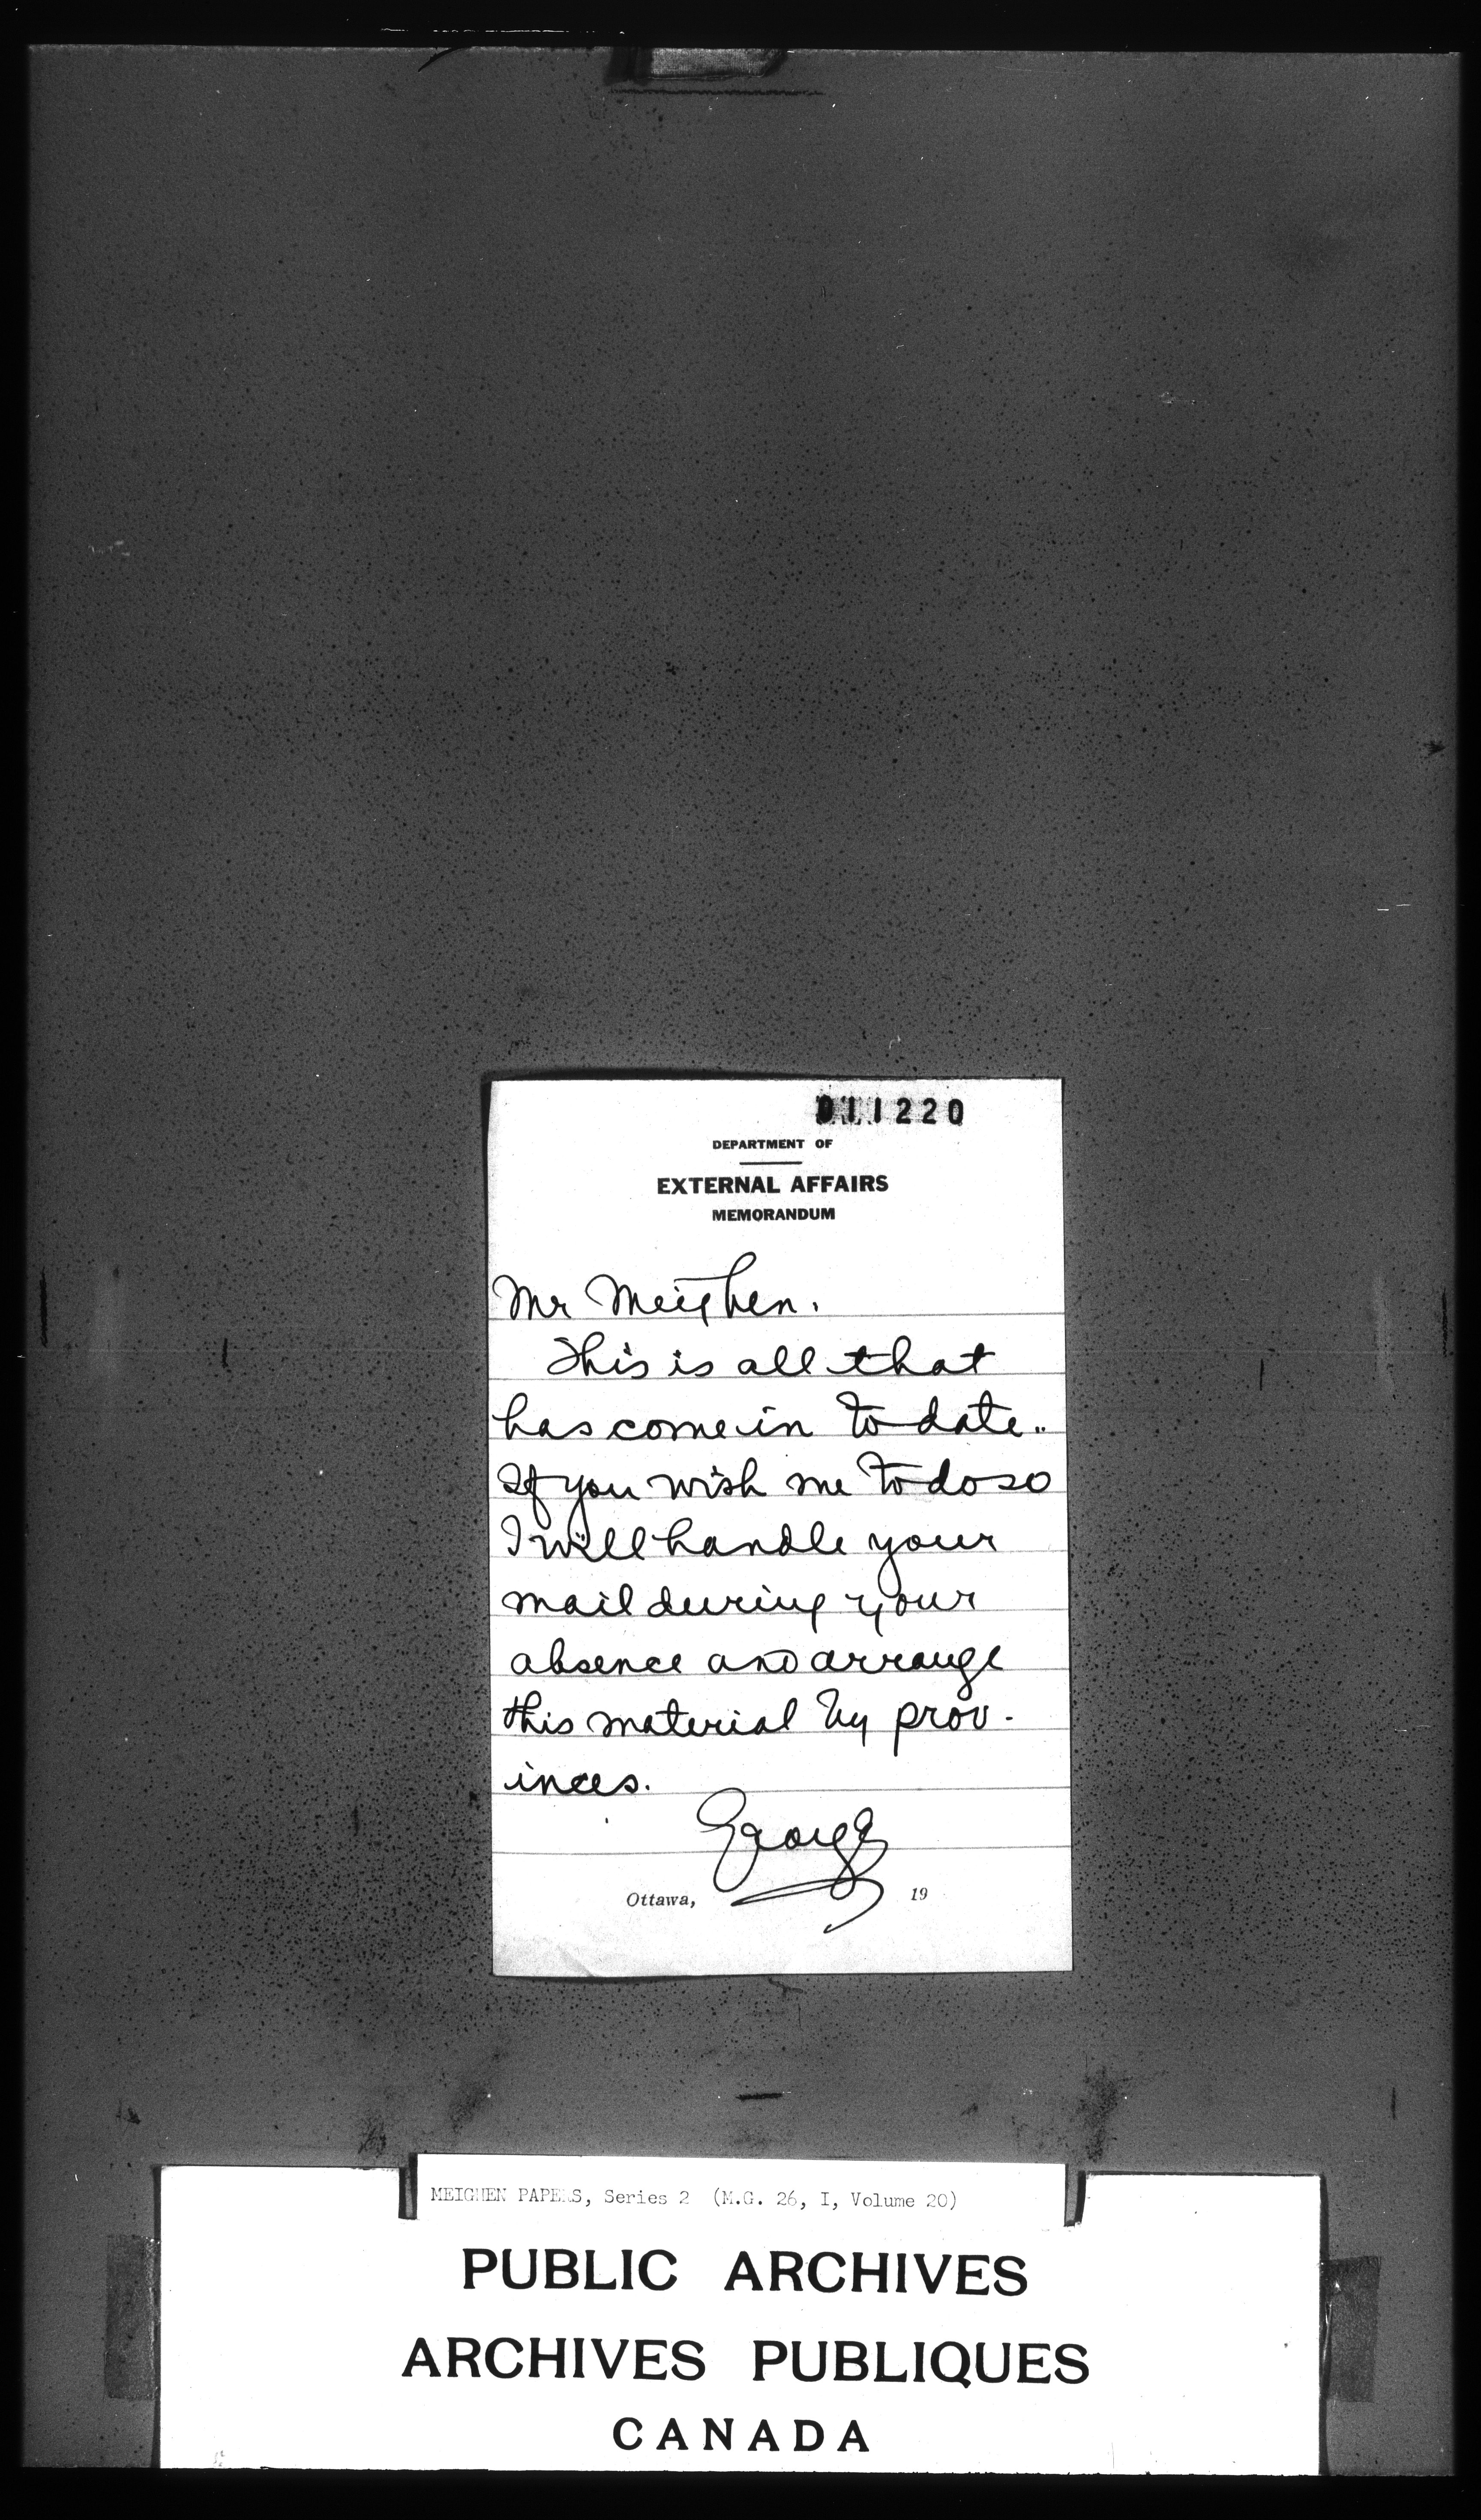 011220
DEPARTMENT OF
EXTERNAL AFFAIRS
MEMORANDUM
Mr Meighen.
This is all that
has come in to date..
If you wish me to do so
I will handle your
mail during your
absence and arrange
this material by prov-
inces.
George
Ottawa, 19
MEIGHEN PAPERS, Series 2 (M.G. 26, I, Volume 20)
PUBLIC ARCHIVES
ARCHIVES PUBLIQUES
CANADA